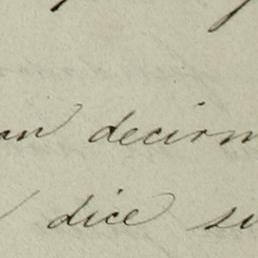 an decirm
dice su